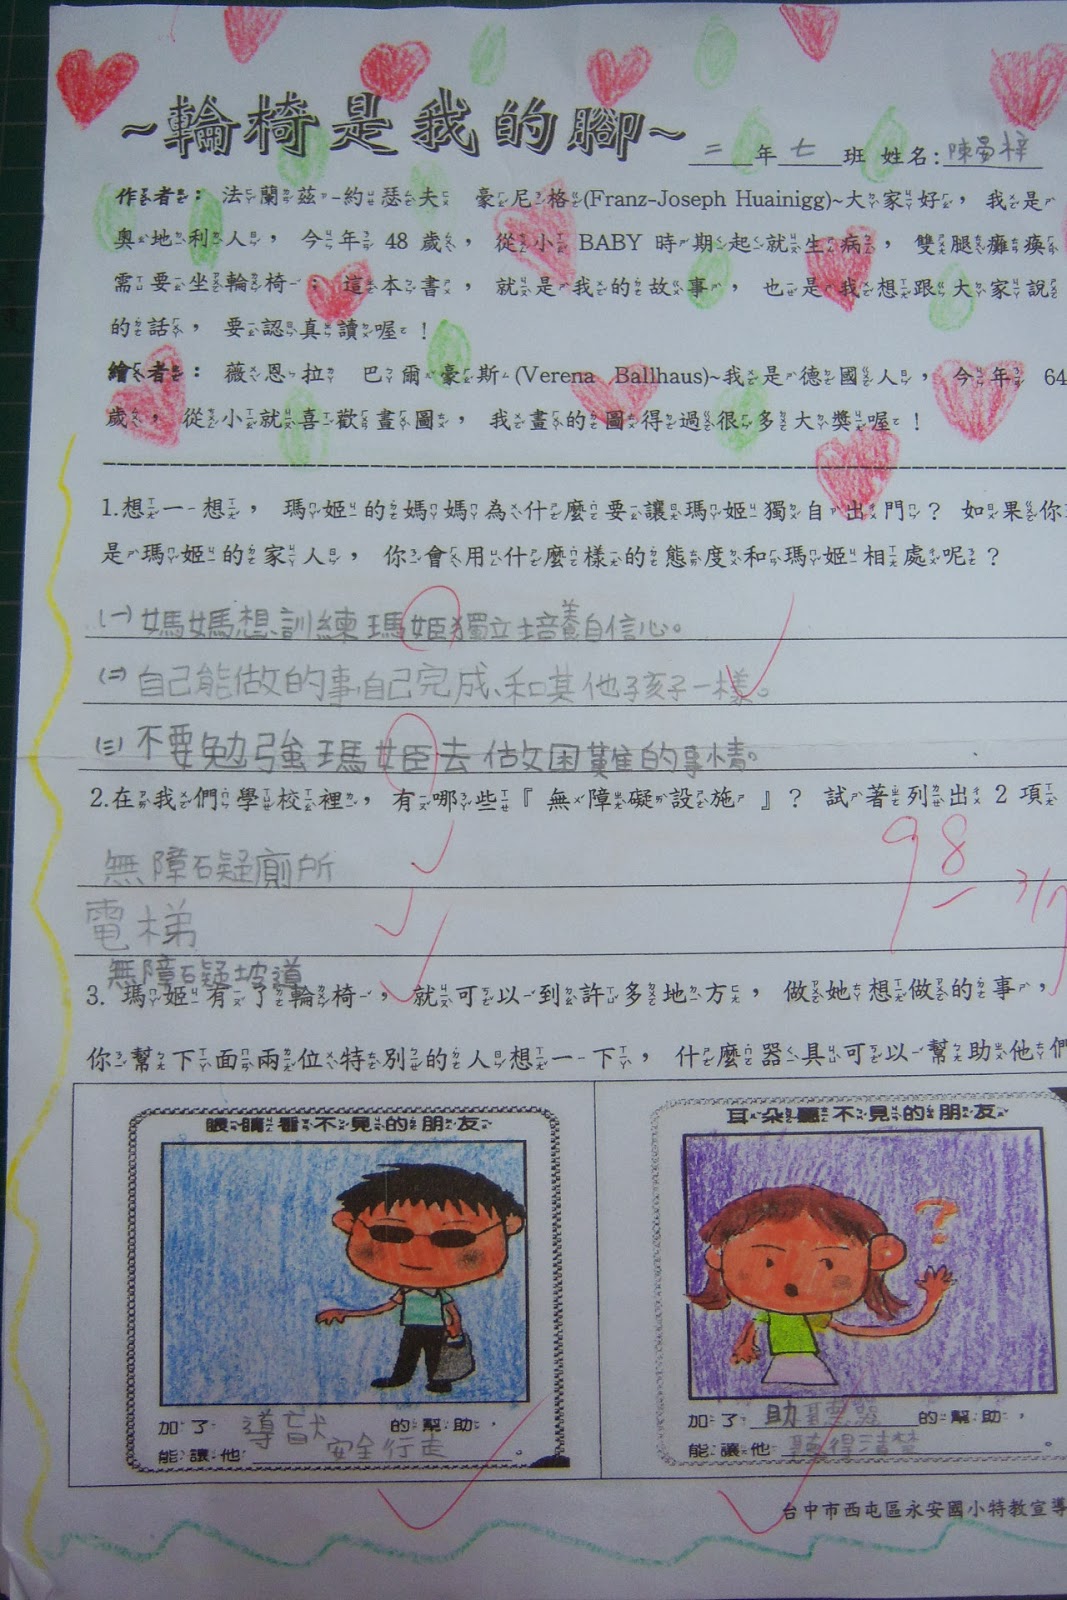 ~輪椅是我的腳~ 二年七班 姓名:陳昜梓
作者: 法蘭茲-約瑟夫 豪尼格(Franz-Joseph Huainigg)~大家好,我是
奧地利人,今年48歲,從小BABY時期起就生病,雙腿癱瘓
需要坐輪椅:這本書,就是我的故事,也是我想跟大家說
的話,要認真讀喔!
繪者: 薇恩拉 巴爾豪斯(Verena Ballhaus)~我是德國人,今年 64
歲,從小就喜歡畫圖,我畫的圖得過很多大獎喔!
1.想一想,瑪姬的媽媽為什麼要讓瑪姬獨自出門?如果你
是瑪姬的家人,你會用什麼樣的態度和瑪姬相處呢?
(一)媽媽想訓練瑪姬獨立培養自信心。
(二)自己能做的事自己完成,和其他孩子一樣。
(三)不要勉強瑪姬去做困難的事情。
2.在我們學校裡,有哪些『無障礙設施』?試著列出2項
無障礙廁所
98
電梯
無障礙坡道
3. 瑪姬有了輪椅,就可以到許多地方,做她想做的事,
你幫下面兩位特別的人想一下,什麼器具可以幫助他們
眼睛看不見的朋友
加了 導盲犬 的幫助,
能讓他 安全行走。
耳朵聽不見的朋友
?
加了 助聽器 的幫助,
能讓他 聽得清楚。
台中市西屯區永安國小特教宣導